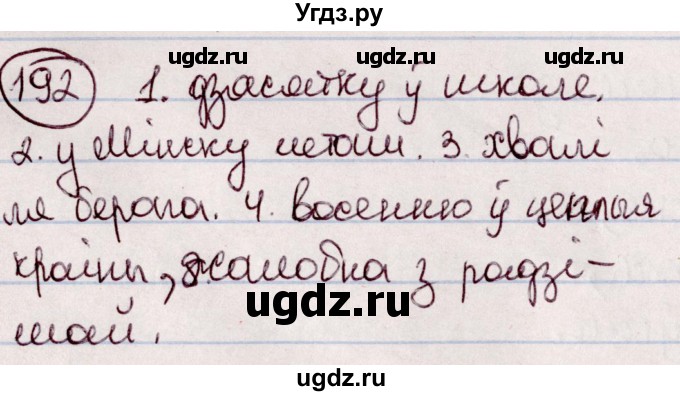 Угдз.ру
ugdz.ru ugdz.ru
192 1. дзясятку ў школе.
2. у Мінску летам. 3. хвалі
ля берага. 4. восенню ў цёплыя
ugdz.ru
краіны, жалобна з радзі-
май.
ugdz.ru ugdz.ru
ugdz.ru